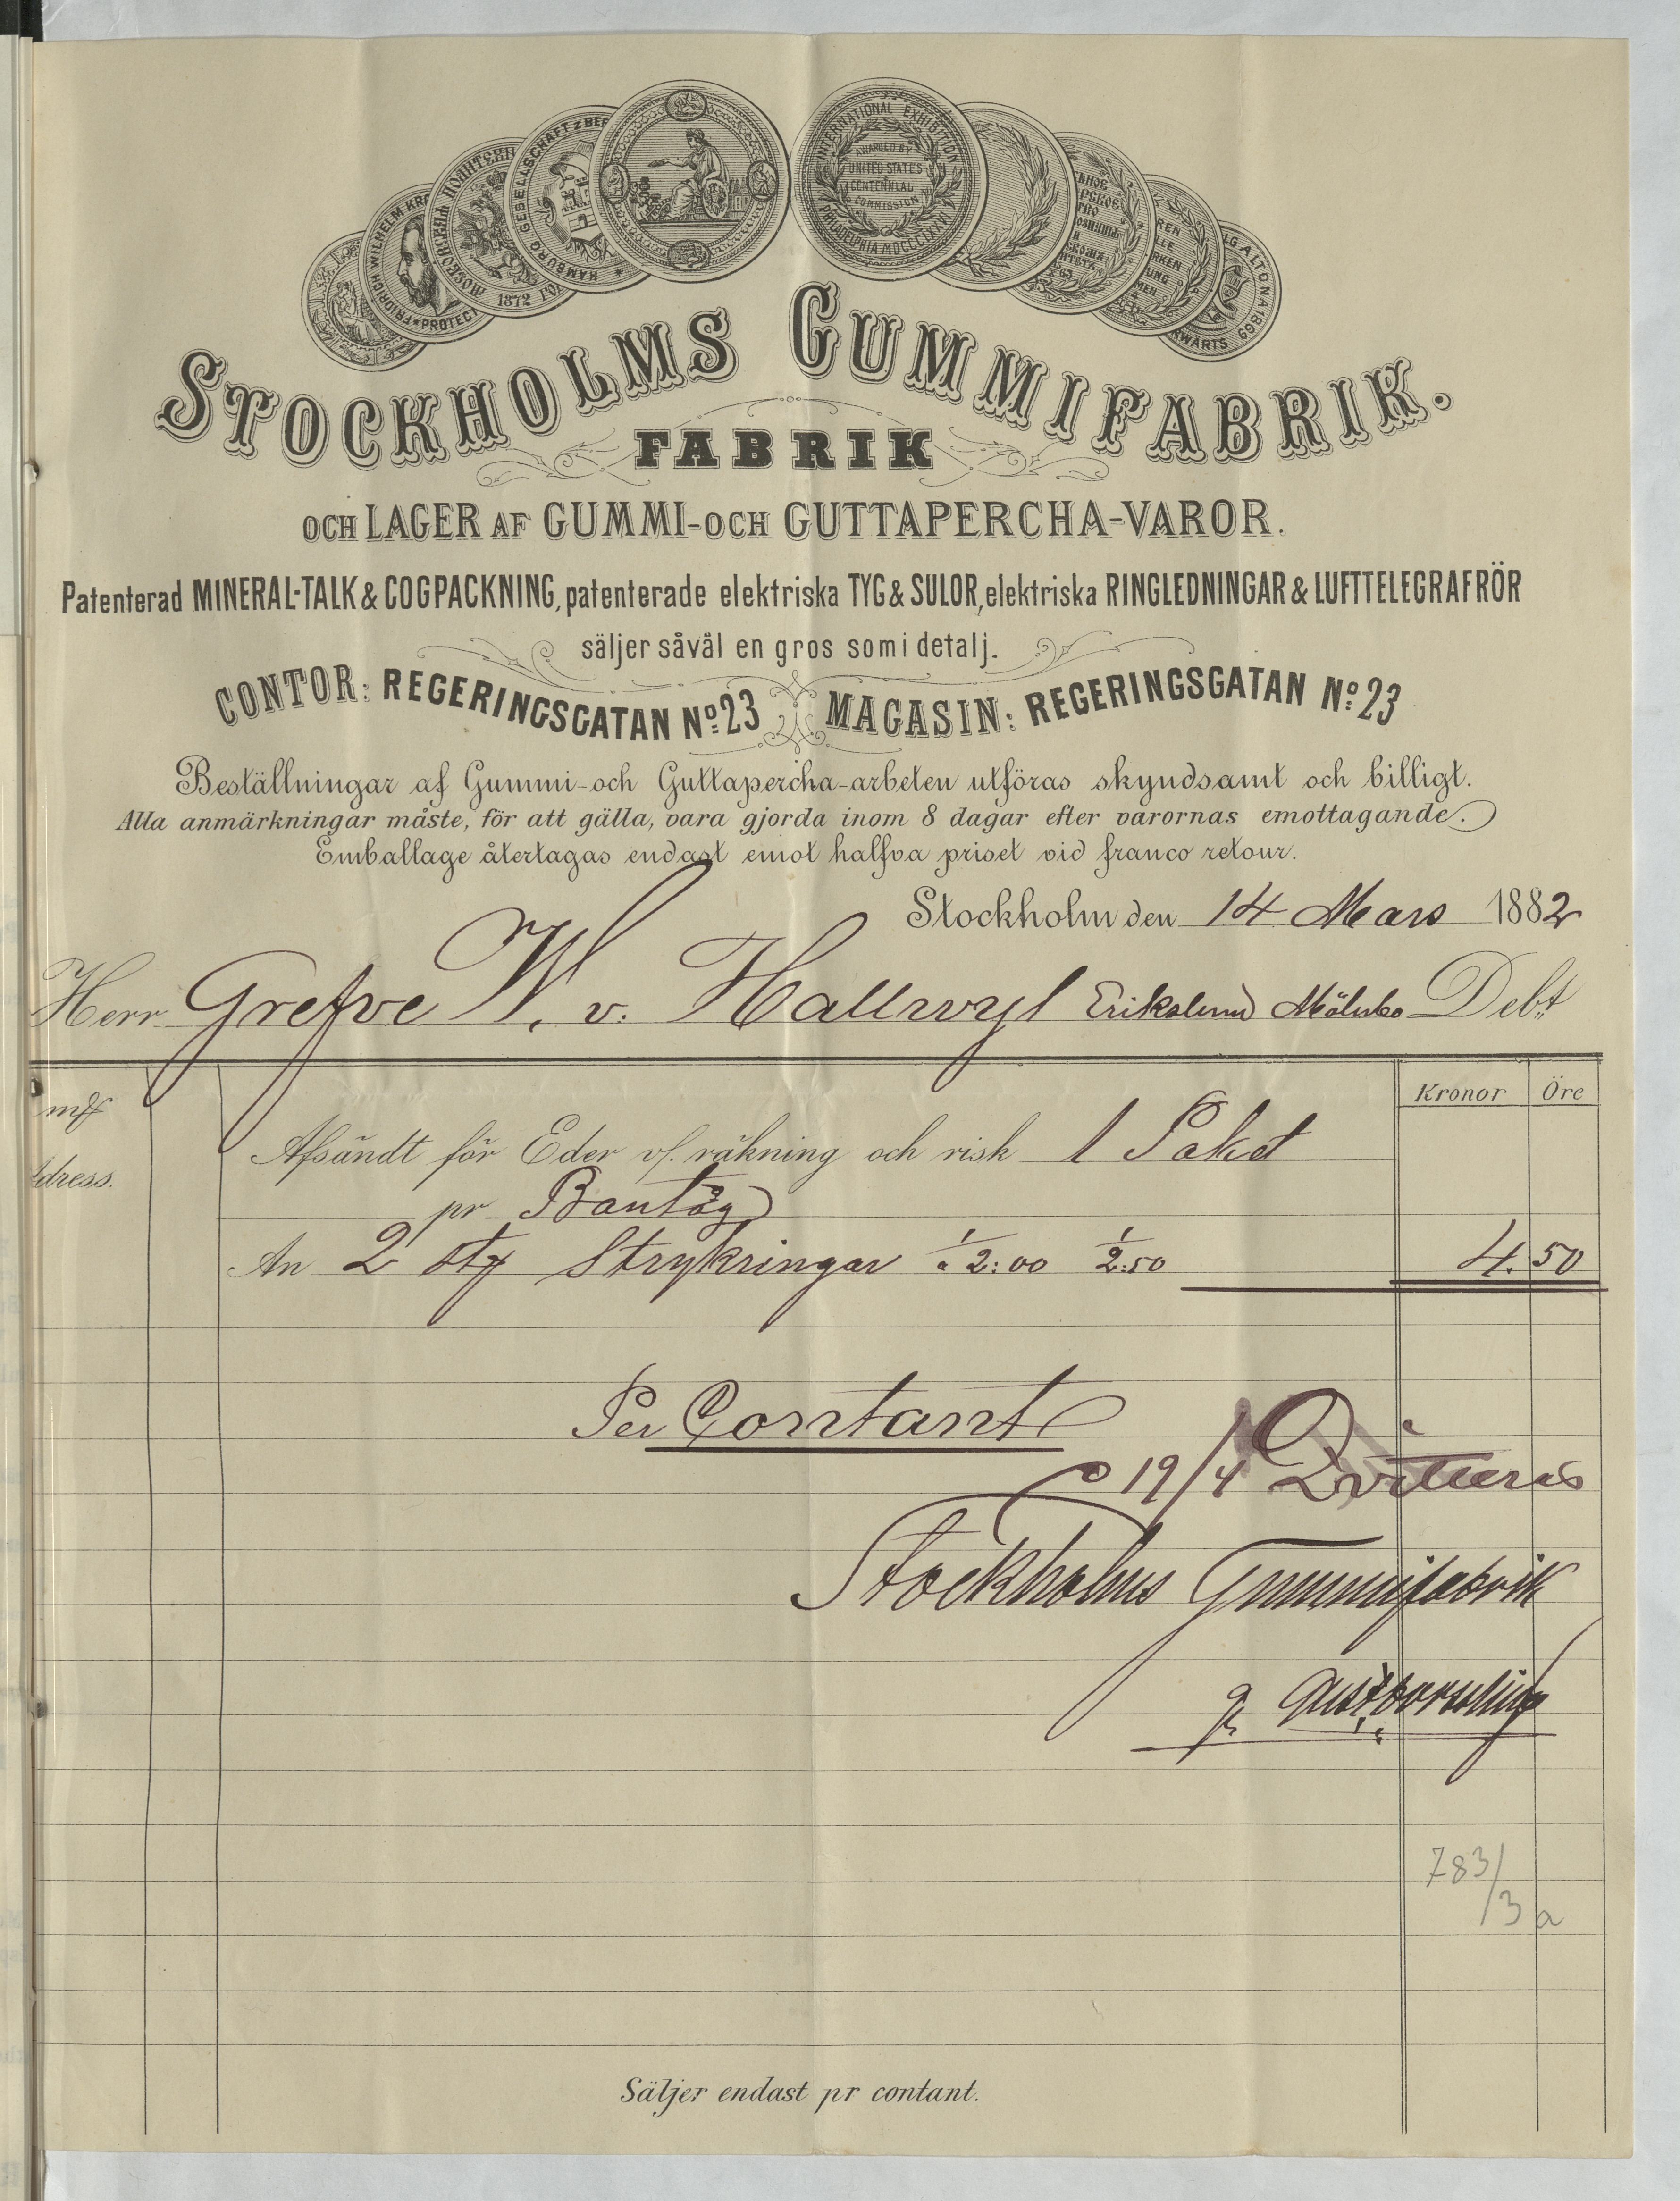 INTERNATIONAL EXHIBITION
PHILADELPHIA MDCCCLXXVI
AWARDED BY
UNITED STATES
CENTENNIAL
COMMISSION
HAMBURG GESELLSCHAFT z BE
1872
FRIDRICH WILHELM KR
PROTECT
ALTONA 1869
WÄRTS
STOCKHOLMS GUMMIFABRIK.
FABRIK
OCH LAGER AF GUMMI-OCH GUTTAPERCHA-VAROR.
Patenterad MINERAL-TALK & COGPACKNING, patenterade elektriska TYG & SULOR, elektriska RINGLEDNINGAR & LUFTTELEGRAFRÖR
säljer såväl en gros som i detalj.
CONTOR: REGERINGSGATAN No. 23 MAGASIN: REGERINGSGATAN No. 23
Beställningar af Gummi-och Guttapercha-arbeten utföras skyndsamt och billigt.
Alla anmärkningar måste, för att gälla, vara gjorda inom 8 dagar efter varornas emottagande.
Emballage återtagas endast emot halfva priset vid franco retour.
Stockholm den 14 Mars 1882
Herr Grefve W. v. Hallwyl Erikslund Mölnbo Debt
Kronor Öre
dress.
Afsändt för Eder vf. räkning och risk 1 Paket
pr Bantåg
An 2 st Strykringar 1/ 2:00 1/ 2:50 4.50
Per Contant
19/4 Qvitteras
Stockholms Gummifabrik
783/3a
Säljer endast pr contant.